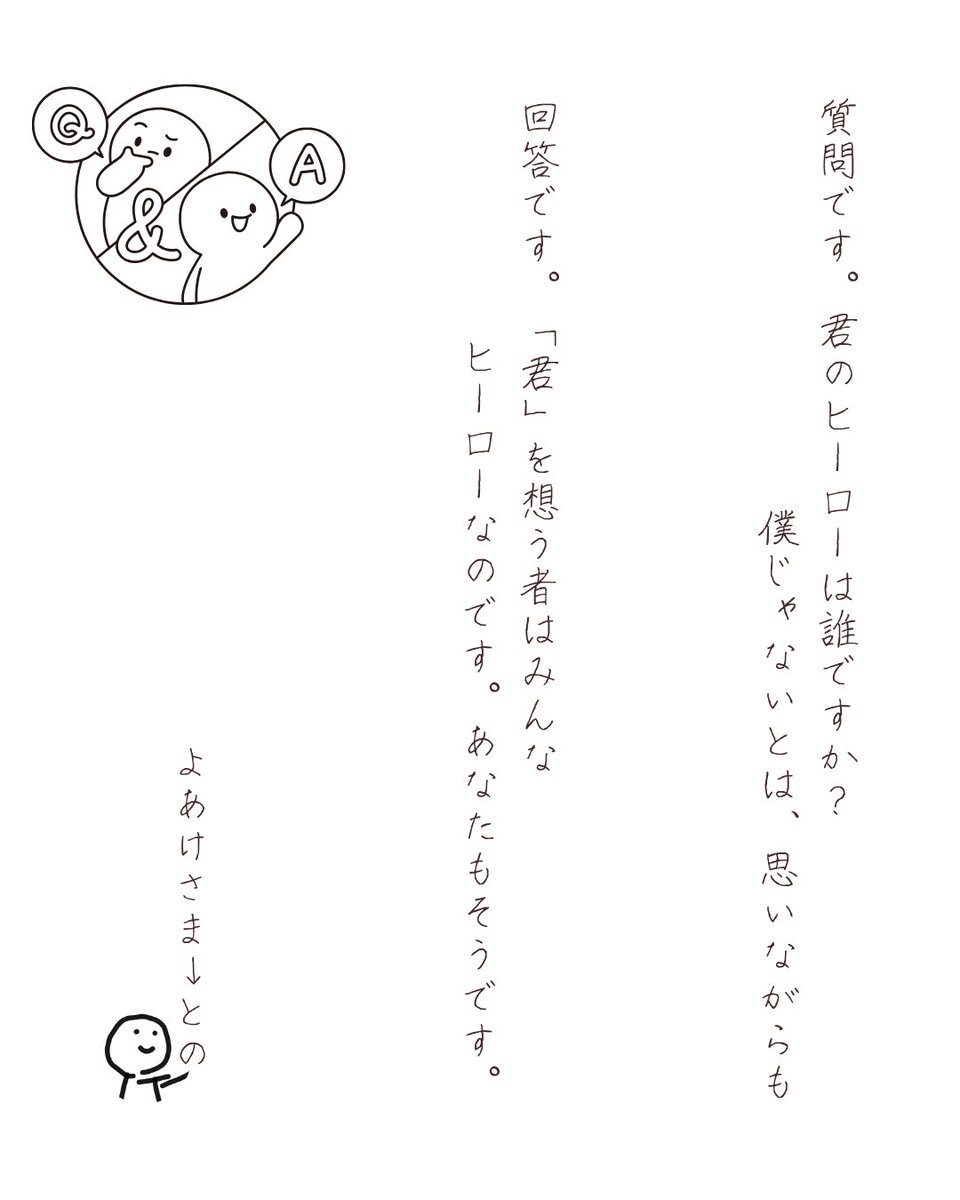 質問です。君のヒーローは誰ですか？
僕じゃないとは、思いながらも
回答です。「君」を想う者はみんな
ヒーローなのです。あなたもそうです。
Q
&
A
よあけさま→との